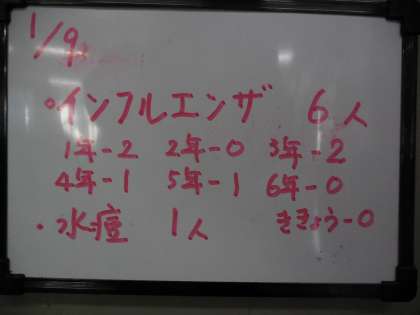 1/9
・インフルエンザ 6人
1年-2 2年-0 3年-2
4年-1 5年-1 6年-0
・水痘 1人 ききょう-0